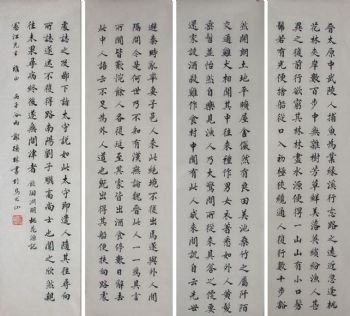 晉太原中武陵人捕魚為業緣溪行忘路之遠近忽逢桃
花林夾岸數百步中無雜樹芳草鮮美落英繽紛漁人甚
異之復前行欲窮其林林盡水源便得一山山有小口髣
髴若有光便捨船從口入初極狹纔通人復行數十步豁
然開朗土地平曠屋舍儼然有良田美池桑竹之屬阡陌
交通雞犬相聞其中往來種作男女衣著悉如外人黃髮
垂髫並怡然自樂見漁人乃大驚問所從來具答之便要
還家設酒殺雞作食村中聞有此人咸來問訊自云先世
避秦時亂率妻子邑人來此絕境不復出焉遂與外人間
隔問今是何世乃不知有漢無論魏晉此人一一為具言
所聞皆歎惋餘人各復延至其家皆出酒食停數日辭去
此中人語云不足為外人道也既出得其船便扶向路處
處誌之及郡下詣太守說如此太守即遣人隨其往尋向
所誌遂迷不復得路南陽劉子驥高尚士也聞之欣然親
往未果尋病終後遂無問津者 陶淵明桃花源記
江先生 丙子谷雨 書於